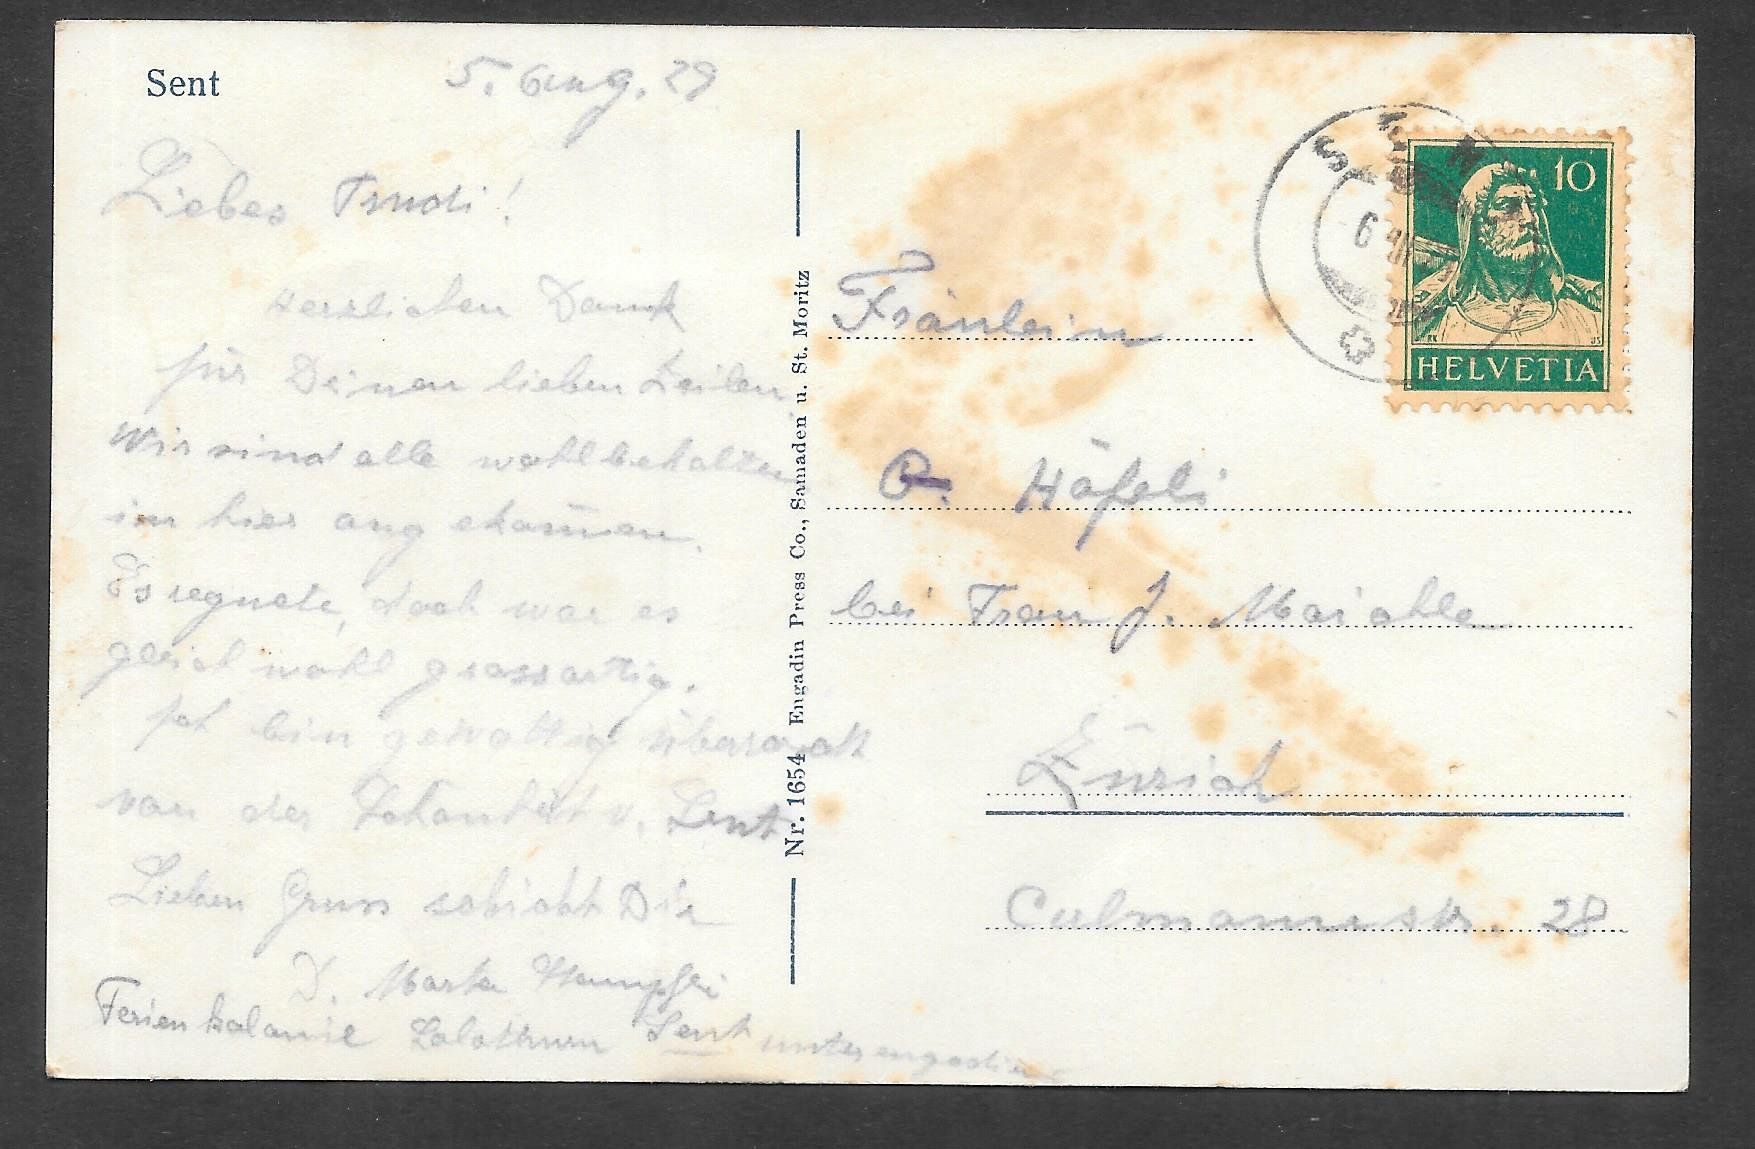 Sent
5. Aug. 29
Liebes Trudi!
Herzlichen Dank
für Deinen lieben Zeilen.
Wir sind alle wohlbehalten
in hier angekom̄en.
Es regnete, doch war es
gleichwohl grossartig.
Ich bin gewaltig überrascht
von der Schönheit v. Sent
Lieben Gruss schickt Dir
D. Marta
Ferienkolonie Solothurn Sent Unterengadin
Nr. 1654 Engadin Press Co., Samaden u. St. Moritz
S E N
6
10
HELVETIA
Fräulein
G. Häfeli
bei Frau J.
Zürich
Culmannstr. 28